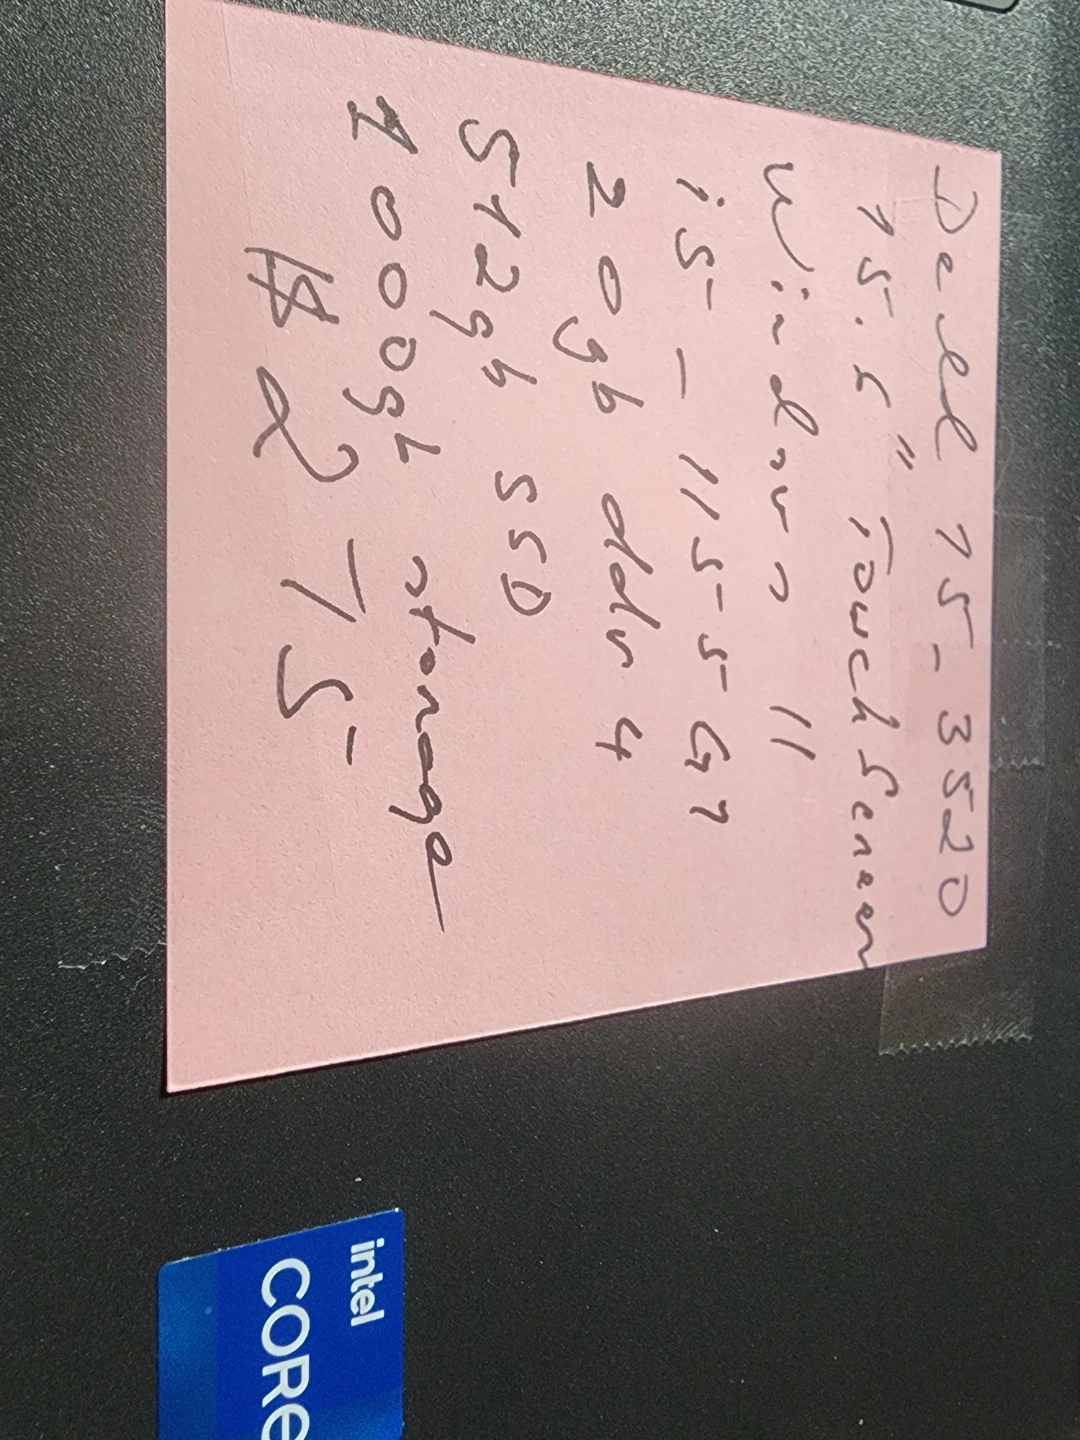 Dell 15-3520
15.6" Touch Screen
Windows 11
i5-1155G7
20gb ddr4
512gb SSD
1000gb storage
$275
intel
CORe